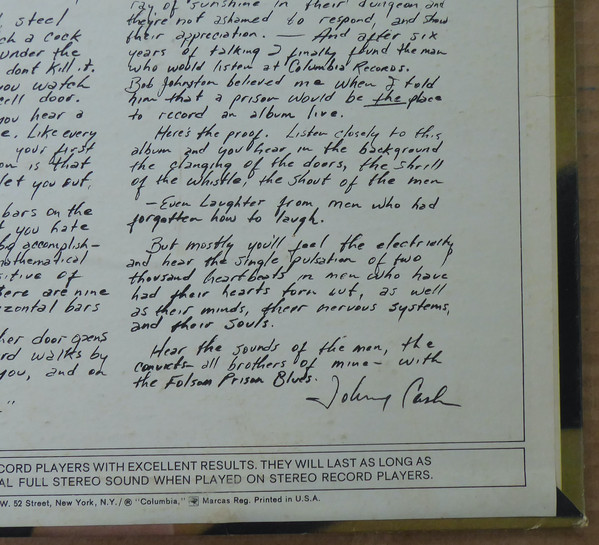 d steel
ch a cock
under the
dont kill it.
you watch
cell door.
you hear a
e. Like every
your first
on is that
let you out.
bars on the
t you hate
big accomplish-
mathematical
sitive of
there are nine
izontal bars
her door opens
rd walks by
you, and on
"
ray of sunshine in their dungeon and
they're not ashamed to respond, and show
their appreciation. — And after six
years of talking I finally found the man
who would listen at Columbia Records.
Bob Johnston believed me when I told
him that a prison would be the place
to record an album live.
Here's the proof. Listen closely to this
album and you hear in the background
the clanging of the doors, the shrill
of the whistle, the shout of the men
— Even laughter from men who had
forgotten how to laugh.
But mostly you'll feel the electricity
and hear the single pulsation of two
thousand heartbeats in men who have
had their hearts torn out, as well
as their minds, their nervous systems,
and their souls.
Hear the sounds of the men, the
convicts- all brothers of mine- with
the Folsom Prison Blues.
Johnny Cash
CORD PLAYERS WITH EXCELLENT RESULTS. THEY WILL LAST AS LONG AS
AL FULL STEREO SOUND WHEN PLAYED ON STEREO RECORD PLAYERS.
W. 52 Street, New York, N.Y./® "Columbia," Marcas Reg. Printed in U.S.A.